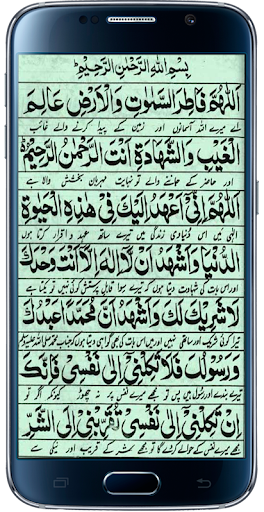 بِسْمِ اللهِ الرَّحْمٰنِ الرَّحِيْمِ
اَللّٰهُمَّ فَاطِرَ السَّمٰوٰتِ وَالْاَرْضِ عَالِمَ
اے میرے اللہ آسمانوں اور زمین کے پیدا کرنے والے غائب
الْغَيْبِ وَالشَّهَادَةِ اَنْتَ الرَّحْمٰنُ الرَّحِيْمُ
اور حاضر کے جاننے والے تو نہایت مہربان بخشش والا ہے
اَللّٰهُمَّ اِنِّىْ اَعْهَدُ اِلَيْكَ فِىْ هٰذِهِ الْحَيٰوةِ
الٰہی میں اس دنیاوی زندگی میں تیرے ساتھ عہد و اقرار کرتا ہوں
الدُّنْيَا وَاَشْهَدُ اَنْ لَّا اِلٰهَ اِلَّا اَنْتَ وَحْدَكَ
اور اس بات کی شہادت دیتا ہوں کہ تیرے سوا کوئی
لَا شَرِيْكَ لَكَ وَاَشْهَدُ اَنَّ مُحَمَّدًا عَبْدُكَ
تیرا کوئی شریک اور ساتھی نہیں اور میں اس بات کی بھی گواہی دیتا ہوں کہ جناب محمد
وَرَسُوْلُكَ فَلَا تَكِلْنِىْ اِلٰى نَفْسِىْ فَاِنَّكَ
تیرے بندے اور رسول ہیں پس تو مجھے میرے نفس پر نہ چھوڑ کیونکہ اگر تو
اِنْ تَكِلْنِىْ اِلٰى نَفْسِىْ تُقَرِّبْنِىْ اِلَى الشَّرِّ
مجھے میرے نفس کے حوالے کر دے گا تو مجھے شر کے قریب اور نیکی سے